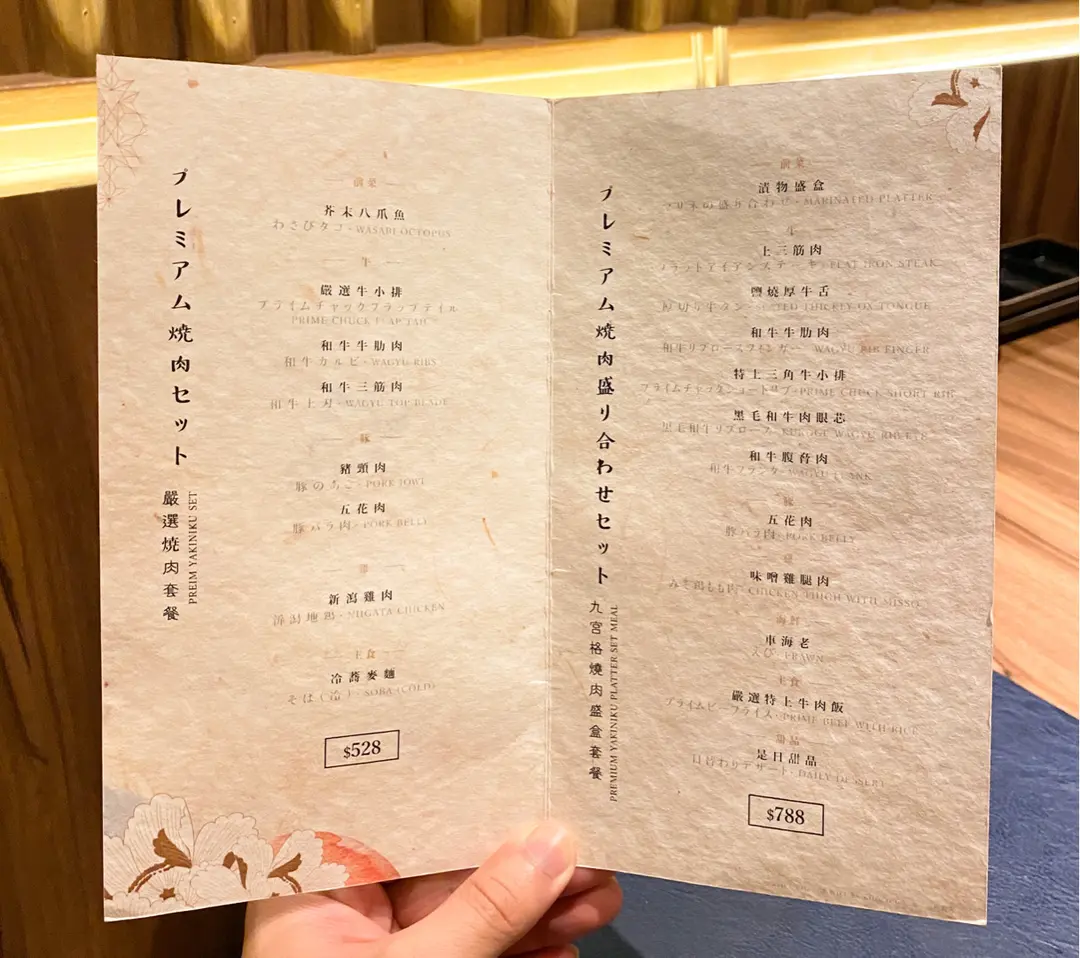 プレミアム焼肉セット
嚴選燒肉套餐
PREIM YAKINIKU SET
前菜
芥末八爪魚
わさびタコ・WASABI OCTOPUS
牛
嚴選牛小排
プライムチャックフラップテイル
PRIME CHUCK FLAP TAIL
和牛牛肋肉
和牛カルビ・WAGYU RIBS
和牛三筋肉
和牛上刃・WAGYU TOP BLADE
豚
豬頸肉
豚のあご・PORK JOWL
五花肉
豚バラ肉・PORK BELLY
新瀉雞肉
新潟地鶏・NIIGATA CHICKEN
主食
冷蕎麥麵
そば(冷)・SOBA (COLD)
$528
プレミアム焼肉盛り合わせセット
九宮格燒肉盛盒套餐
PREMIUM YAKINIKU PLATTER SET MEAL
前菜
漬物盛盒
マリネの盛り合わせ・MARINATED PLATTER
牛
上三筋肉
フラットアイアンステーキ・FLAT IRON STEAK
鹽燒厚牛舌
厚切り牛タン・ THICKEY OX TONGUE
和牛牛肋肉
和牛リブロースフィンガー・WAGYU RIB FINGER
特上三角牛小排
プライムチャックショートリブ・PRIME CHUCK SHORT RIB
黑毛和牛肉眼芯
黒毛和牛リブロース・KUROGE WAGYU RIBEYE
和牛腹脅肉
和牛フランク・WAGYU FLANK
豚
五花肉
豚バラ肉・PORK BELLY
味噌雞腿肉
みそ鶏もも肉・CHICKEN THIGH WITH MISSO
海鮮
車海老
えび・PRAWN
主食
嚴選特上牛肉飯
プライムビーフライス・PRIME BEEF WITH RICE
甜品
是日甜品
日替わりデザート・DAILY DESSERT
$788